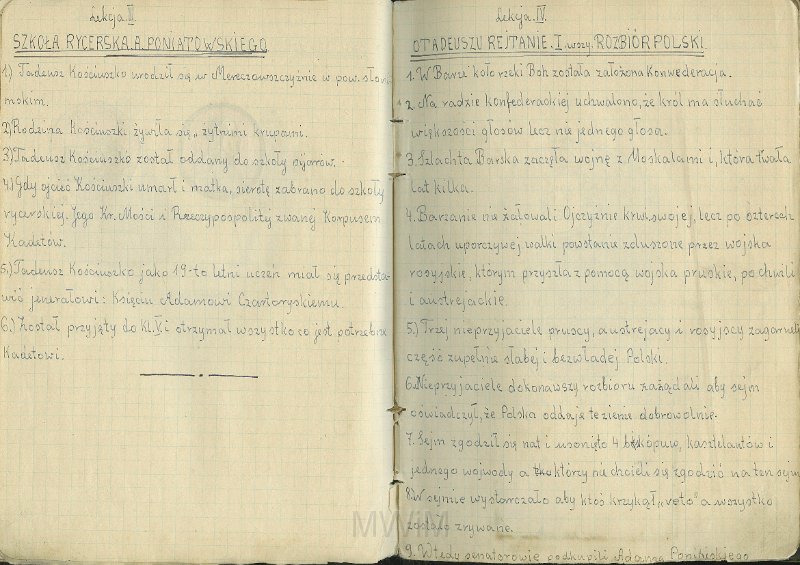 Lekcja. II.
SZKOŁA RYCERSKA. A. PONIATOWSKIEGO
1.) Tadeusz Kościuszko urodził się w Mereczowszczyźnie w pow. słoni-
mskim.
2.) Rodzina Kościuszki żywiła się „żytnimi krupami.
3.) Tadeusz Kościuszko został oddany do szkoły pijarów.
4.) Gdy ojciec Kościuszki umarł i matka, sierotę zabrano do szkoły
rycerskiej. Jego Kr. Mości i Rzeczypospolity zwanej Korpusem
Kadetów.
5.) Tadeusz Kościuszko jako 19-to letni uczeń miał się przedsta-
wić jenerałowi: Księciu Adamowi Czartoryskiemu.
6.) Został przyjęty do Kl. V i otrzymał wszystko co jest potrzebne
Kadetowi.
Lekcja. IV.
O TADEUSZU REJTANIE. I-wszy. ROZBIÓR POLSKI.
1. W Barze koło rzeki Boh została założona Konwederacja.
2. Na radzie konfederackiej uchwalono, że król ma słuchać
większości głosów lecz nie jednego głosa.
3. Szlachta Barska zaczęła wojnę z Moskalami i, która trwała
lat kilka.
4. Barzanie nie żałowali Ojczyźnie krwi swojej, lecz po czterech
latach uporczywej walki powstanie zduszone przez wojska
rosyjskie, którym przyszła z pomocą wojska pruskie, po chwili
i austrejackie.
5.) Trzej nieprzyjaciele pruscy, austrejacy i rosyjscy zagarneli
część zupełnie słabej i bezwładej Polski.
6. Nieprzyjaciele dokonawszy rozbioru zażądali aby sejm
oświadczył, że Polska oddaje te ziemie dobrowolnie.
7. Sejm zgodził się nat i usonięto 4 biskópuw, kasztelantów i
jednego wojwody a którzy nie chcieli się zgodzić na ten sejm
8. W sejmie wystarczało aby ktoś krzyknął „veto" a wszystko
zostało zrywane.
9. Wtedy senatorowie podkupili Adama Ponińskiego
MWiM